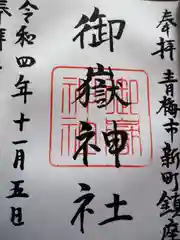 奉拝 青梅市新町鎮座
御嶽神社
令和四年十一月五日